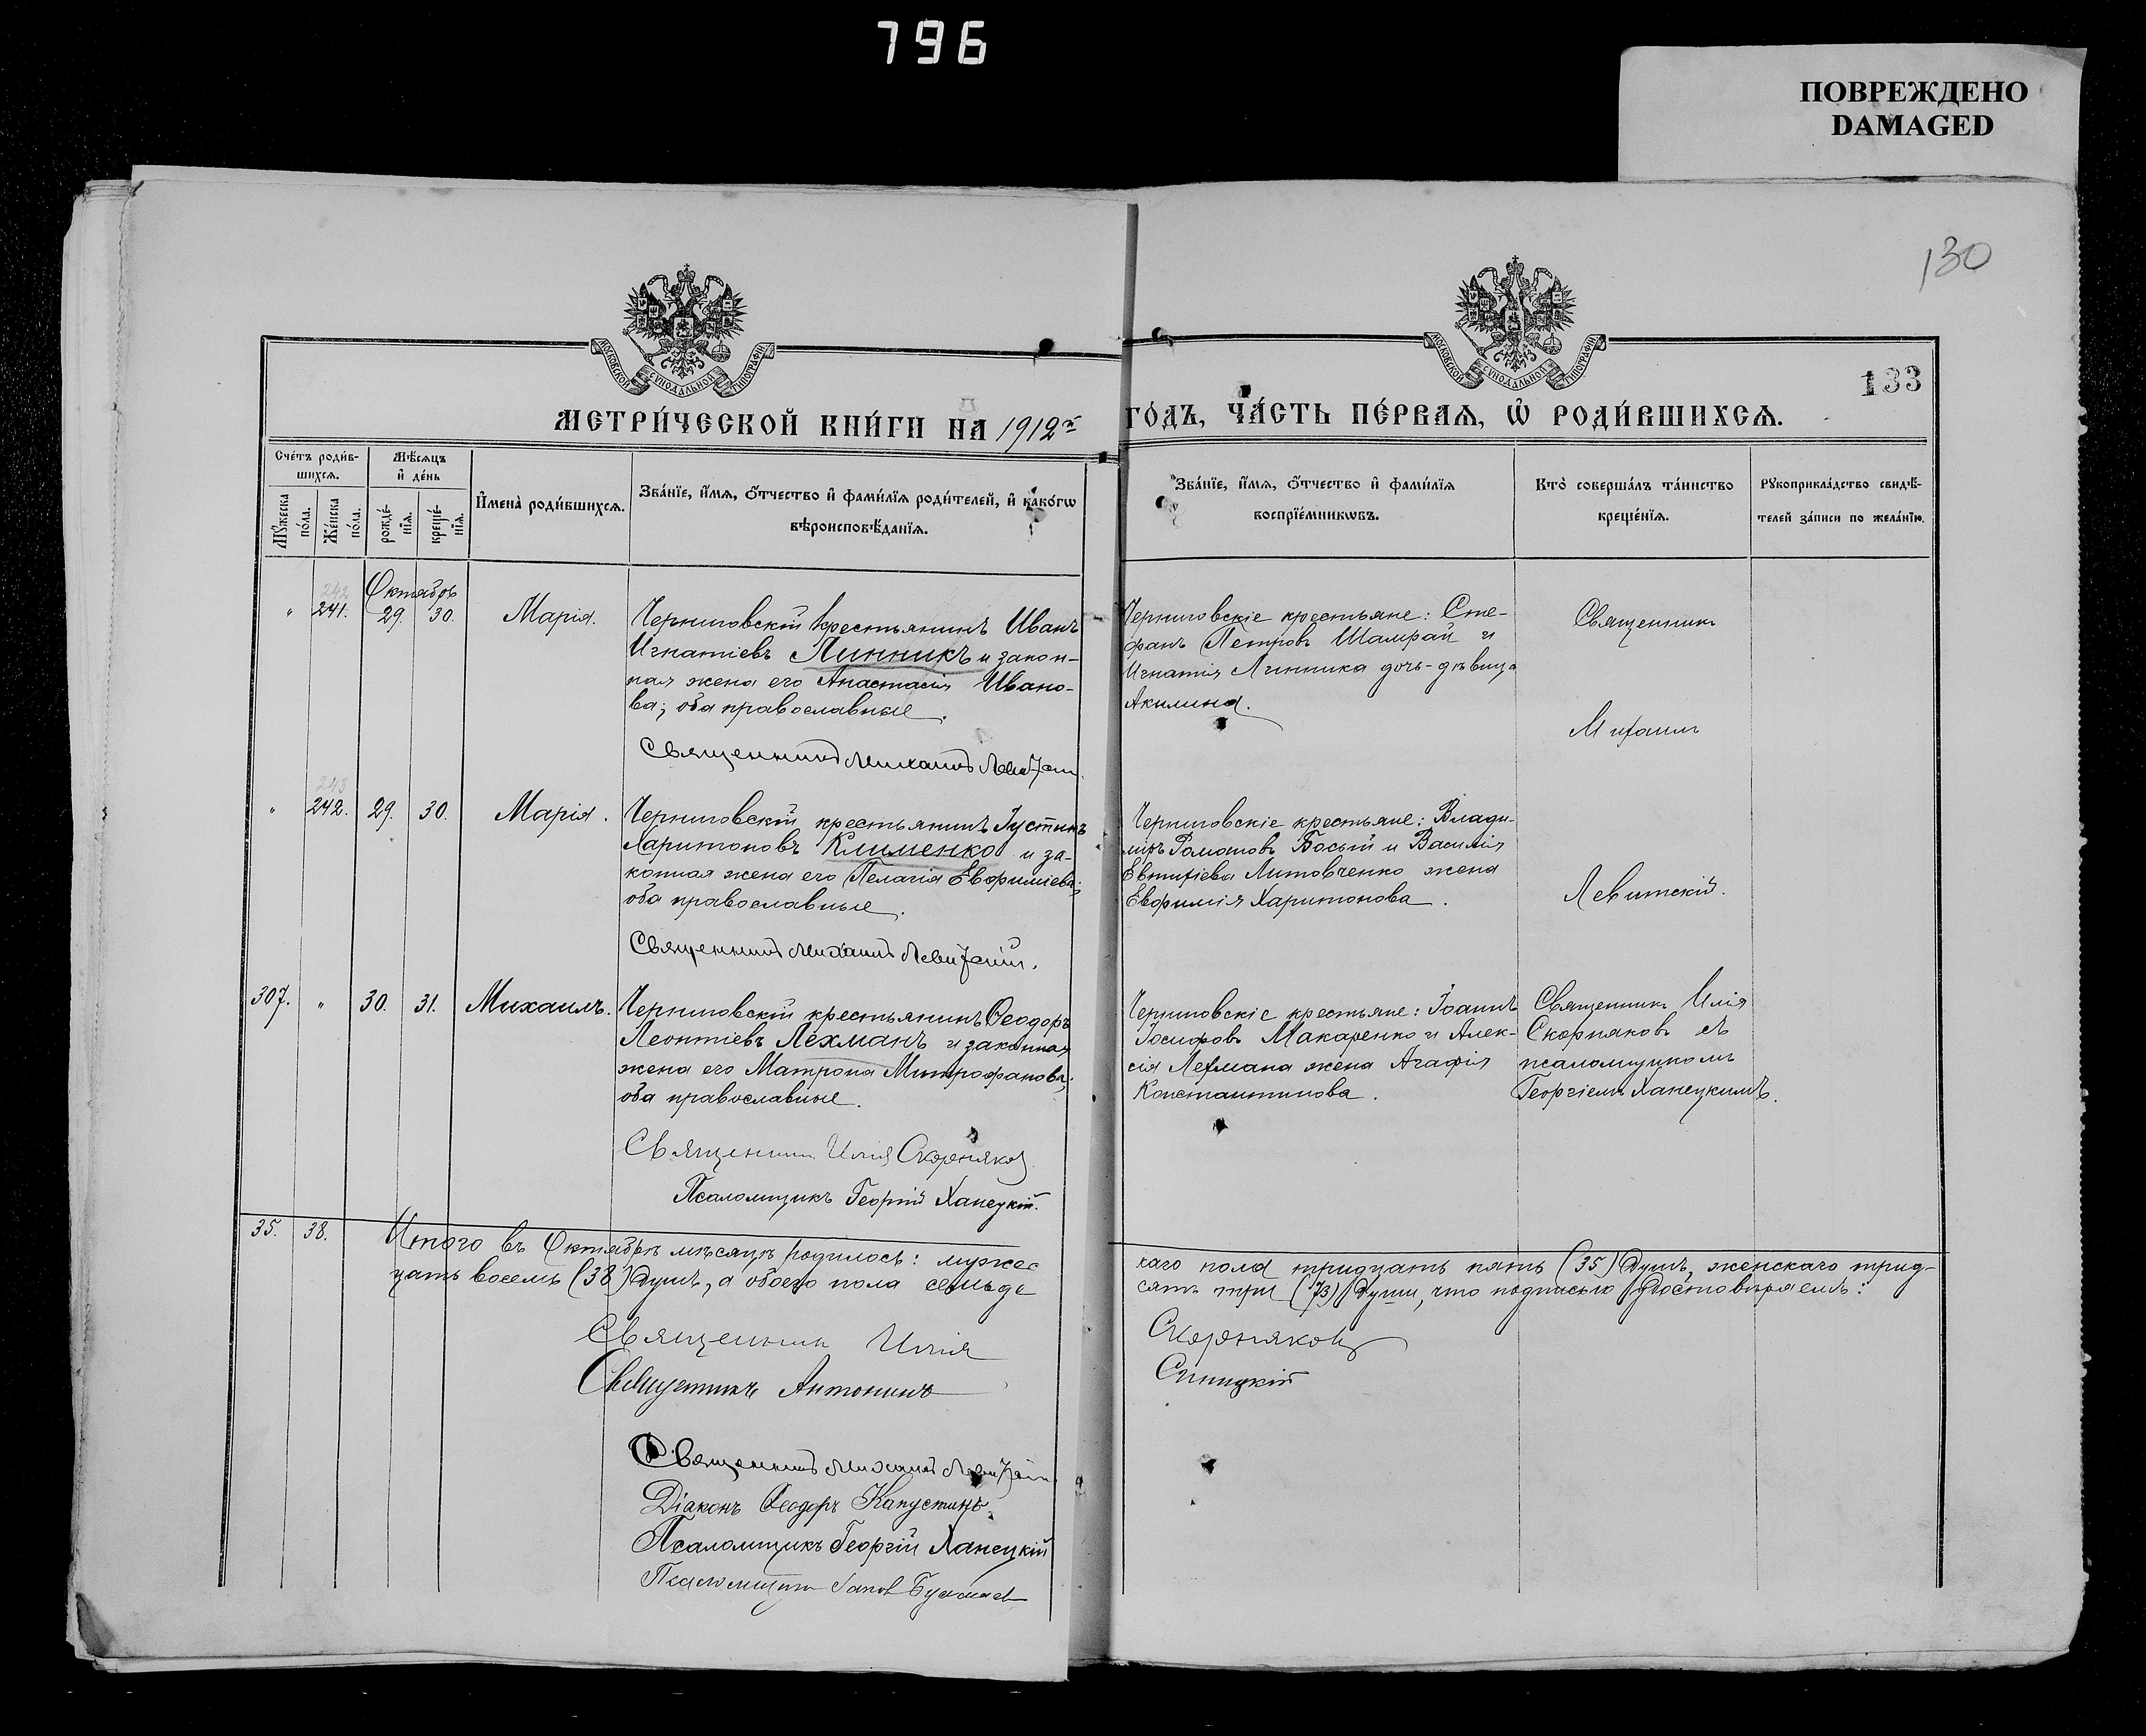 796
ПОВРЕЖДЕНО
DAMAGED
130
133
МОСКОВСКОЙ СѴНОДАЛЬНОЙ ТИПОГРАФІИ
МОСКОВСКОЙ СѴНОДАЛЬНОЙ ТИПОГРАФІИ
МЕТРИ́ЧЕСКОЙ КНИ́ГИ НА 1912й ГО́ДЪ, ЧА́СТЬ ПЕ́РВАЯ, Ѡ҆ РОДИ́ВШИХСЯ.
Сче́тъ роди́в-
шихся.
Мꙋ́жеска по́ла.
Же́нска по́ла.
Мѣ́сяцъ
и҆ де́нь
рожде́-
нїя.
креще́-
нїя.
И҆мена̀ роди́вшихся.
Зва́нїе, и҆́мя, о҆́тчество и҆ фами́лїя роди́телей, и҆ како́гѡ
вѣроисповѣ́данїя.
Зва́нїе, и҆́мя, о҆́тчество и҆ фами́лїя
воспрїе́мникѡвъ.
Кто̀ соверша́лъ та́инство
креще́нїя.
Рꙋкоприкла́дство свидѣ́-
телей за́писи по жела́нїю.
Октябрь
242
" 241. 29. 30. Марія.
Черниговскій крестьянинъ Иванъ
Игнатіевъ Линникъ и закон-
ная жена его Анастасія Ивано-
ва; оба православные.
Священникъ Михаилъ Левитскій
Черниговскіе крестьяне: Сте-
фанъ Петровъ Шамрай и
Игнатія Линника дочь-дѣвица
Акилина.
Священникъ
Михаилъ
243
" 242. 29. 30. Марія.
Черниговскій крестьянинъ Іустинъ
Харитоновъ Клименко и за-
конная жена его Пелагія Евфиміева;
оба православные.
Священникъ Михаилъ Левитскій.
Черниговскіе крестьяне: Влади-
миръ Романовъ Босый и Василія
Евтихіева Литовченко жена
Евфимія Харитонова.
Левитскій.
307. " 30. 31. Михаилъ.
Черниговскій крестьянинъ Ѳеодоръ
Леонтіевъ Лехманъ и законная
жена его Матрона Митрофанова;
оба православные.
Священникъ Илія Скорняковъ
Псаломщикъ Георгій Ханецкій.
Черниговскіе крестьяне: Іоаннъ
Іосифовъ Макаренко и Алек-
сія Лехмана жена Агафія
Константинова.
Священникъ Илія
Скорняковъ съ
псаломщикомъ
Георгіемъ Ханецкимъ.
35. 38. Итого въ Октябрѣ мѣсяцѣ родилось: мужес
каго пола тридцать пять (35) душъ, женскаго трид-
цать восемь (38) душъ, а обоего пола семьде
сятъ три (73) души, что подписью удостовѣряемъ:
Священникъ Илія Скорняковъ
Священникъ Антонинъ Синицкій
Священникъ Михаилъ Левитскій
Діаконъ Ѳеодоръ Капустинъ.
Псаломщикъ Георгій Ханецкій
Псаломщикъ